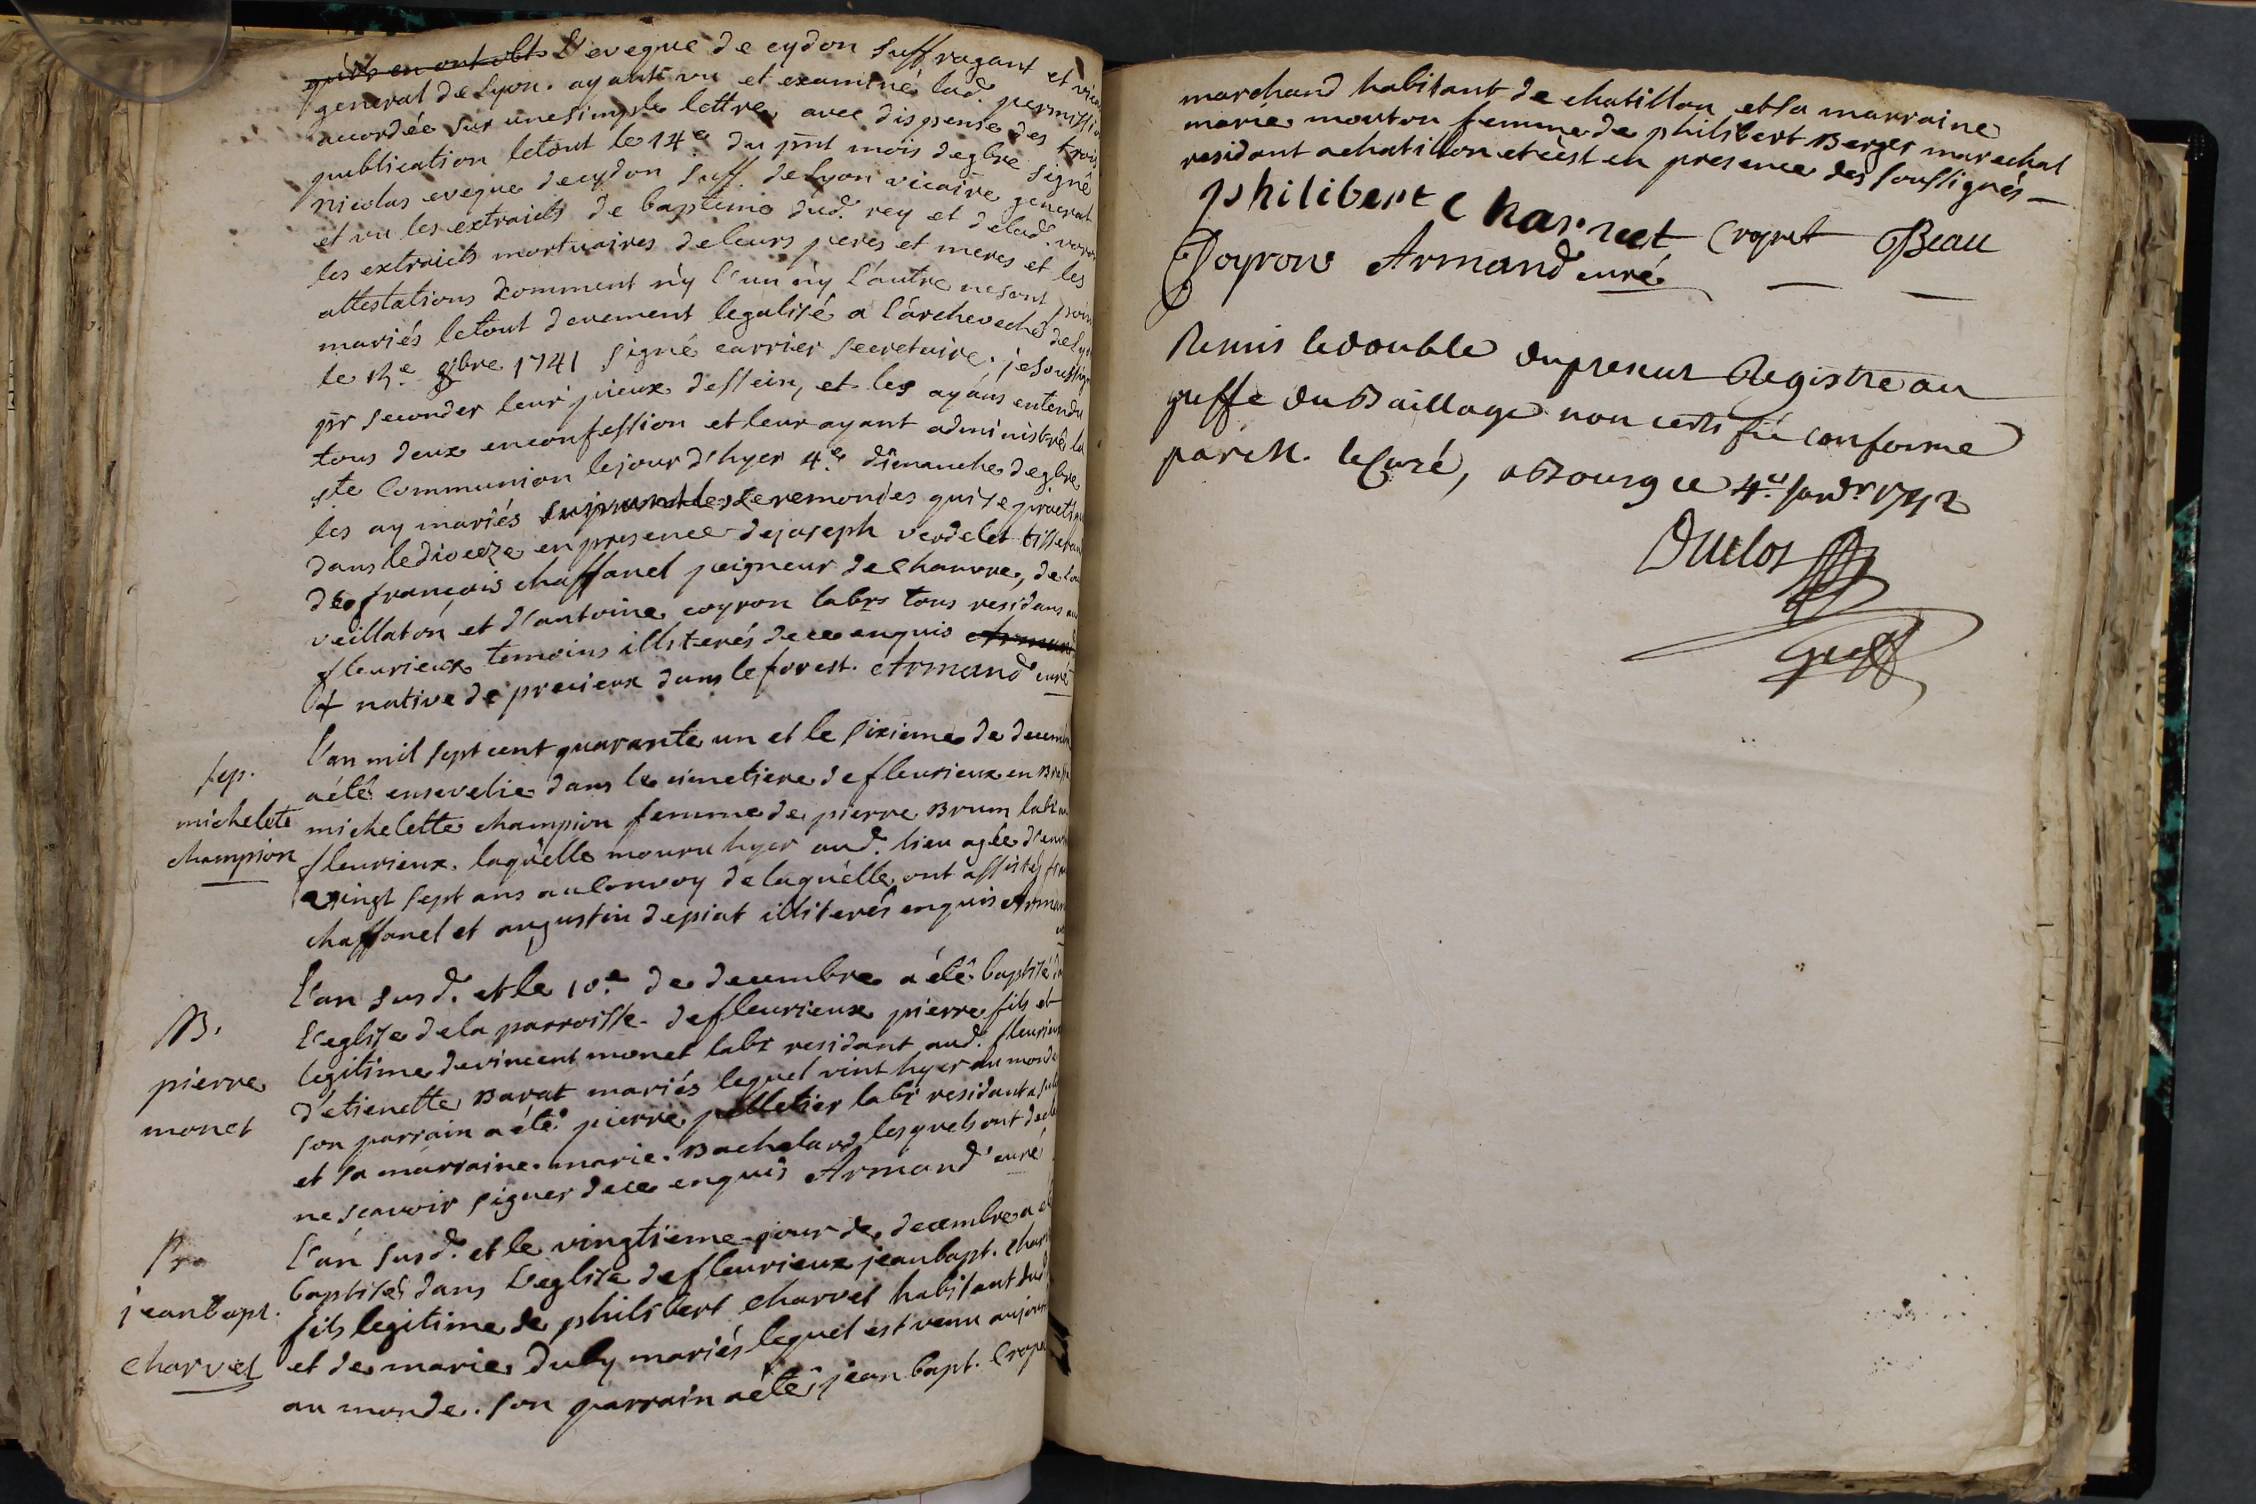 l'eveque de cydon suffragant et vicai
general de Lyon. ayant vu et examiné lad. permissio
accordée sur une simple lettre, avec dispense des trois
publication le tout le 14e du pnt mois de 9bre signé
nicolas eveque de cydon suff. de Lyon vicaire general
et vu les extraicts de baptême dud. rey et de lad.
les extraicts mortuaires de leurs peres et meres et les
attestations comment n'y l'un n'y l'autre ne sont poin
mariés le tout devement legalisé a l'archeveché de Ly
le 13e 9bre 1741 signé carrier secretaire, je soussign
pr seconder leur pieux dessein, et les ayans entendu
tous deux en confession et leur ayant administré la
ste Communion le jour d'hyer 4e dimanche de 9bre
les ay mariés suivant les ceremonies qui se practiq
dans le dioceze en presence de joseph verdelet tisseran
de françois chaffanel peigneur de chanvre, de
veillaton et d'antoine coyron labr tous residans au
fleurieux temoins illiterés de ce enquis Armand
+ native de precieux dans le forest. Armand curé
sep.
michelete
champion
L'an mil sept cent quarante un et le sixieme de decemb
a été ensevelie dans le cimetiere de fleurieux en Bress
michelette champion femme de pierre Brum labr au
fleurieux. laquelle mouru hyer aud. lieu agée d'env
vingt sept ans au Convoy de laquelle ont assistés fran
chaffanel et augustin depiat illiterés enquis Arman
B.
pierre
monet
L'an susd. et le 10e de decembre a été baptisé da
l'eglise de la parroisse de fleurieux pierre fils et
legitime de vincent monet labr residant aud. fleurieux
d'etienette Barat mariés lequel vint hyer au monde
son parrain a été pierre pelletier labr residant a
et sa marraine marie Bachelard lesquels ont decla
ne scavoir signer de ce enquis Armand curé
B.
jean bapt.
charvet
L'an susd. et le vingtieme jour de decembre a e
baptisé dans l'eglise de fleurieux jean bapt. char
fils legitime de philibert charvet habitant dud
et de marie Duby mariés lequel est venu aujour
au monde. son parrain a été jean bapt. Crope
marchand habitant de chatillon et sa marraine
marie mouton femme de philibert Berger marechal
residant a chatillon et c'est en presence des soussignés
Philibert Charvet Cropet Beau
Coyron Armand curé
Remis le double du present Registre au
greffe du Baillage non certifié conforme
par M. le Curé, a Bourg ce 4e janvr 1742
Duclos
Greff